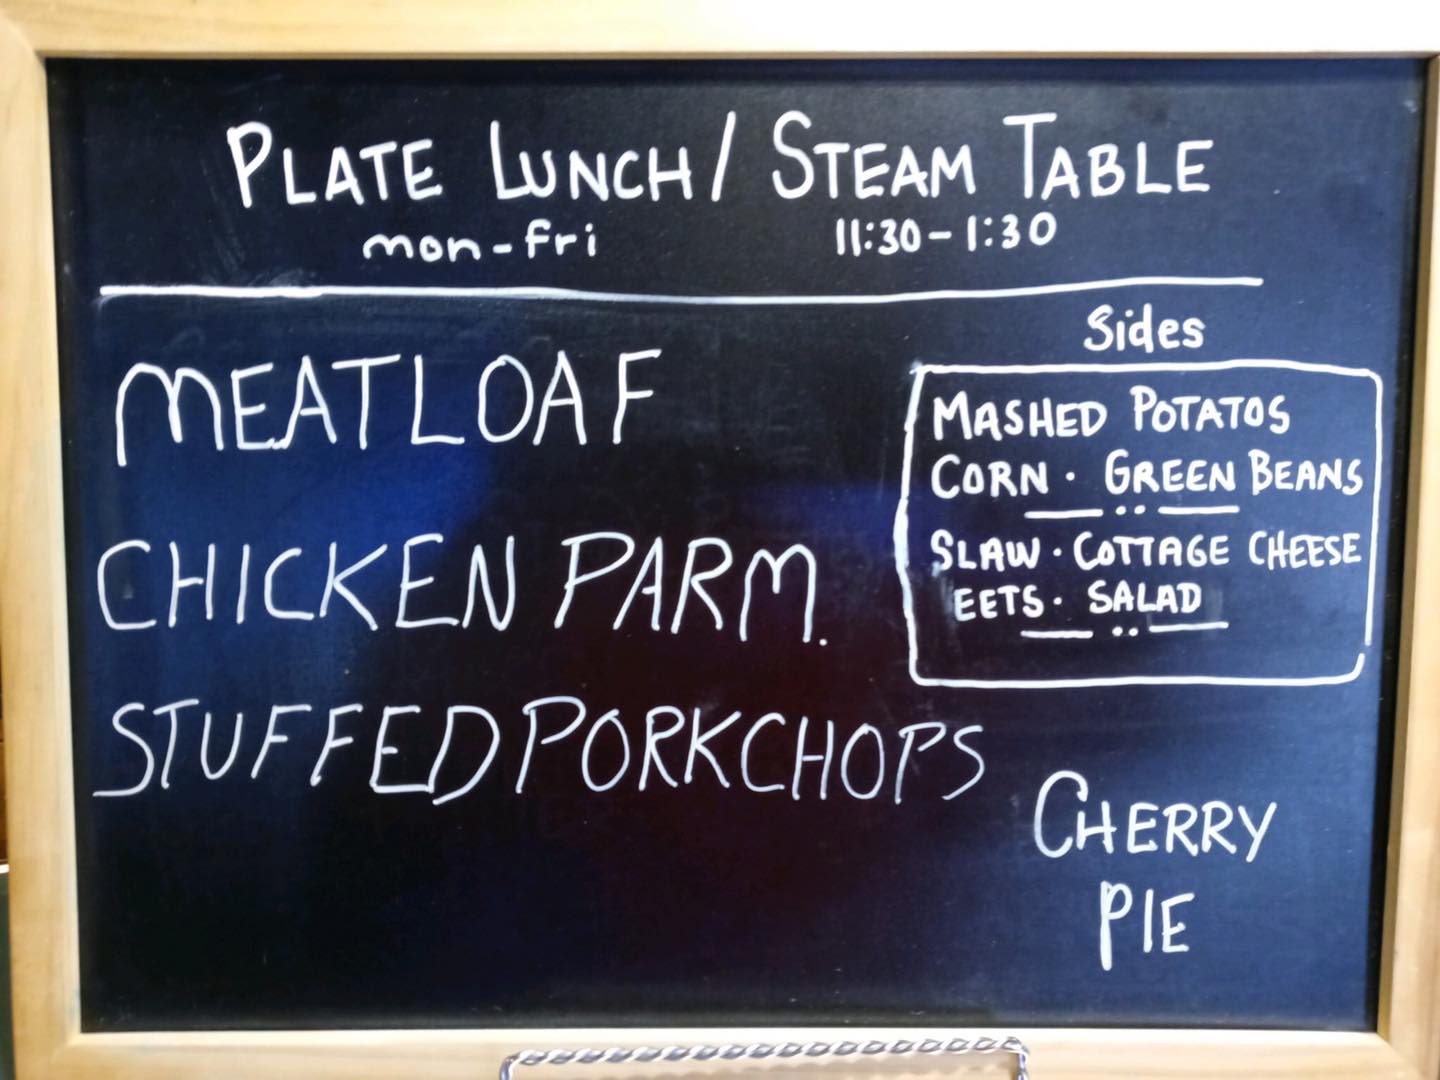 PLATE LUNCH / STEAM TABLE
mon-fri 11:30-1:30
MEATLOAF
CHICKEN PARM.
STUFFED PORKCHOPS
Sides
MASHED POTATOS
CORN · GREEN BEANS
SLAW · COTTAGE CHEESE
EETS · SALAD
CHERRY
PIE